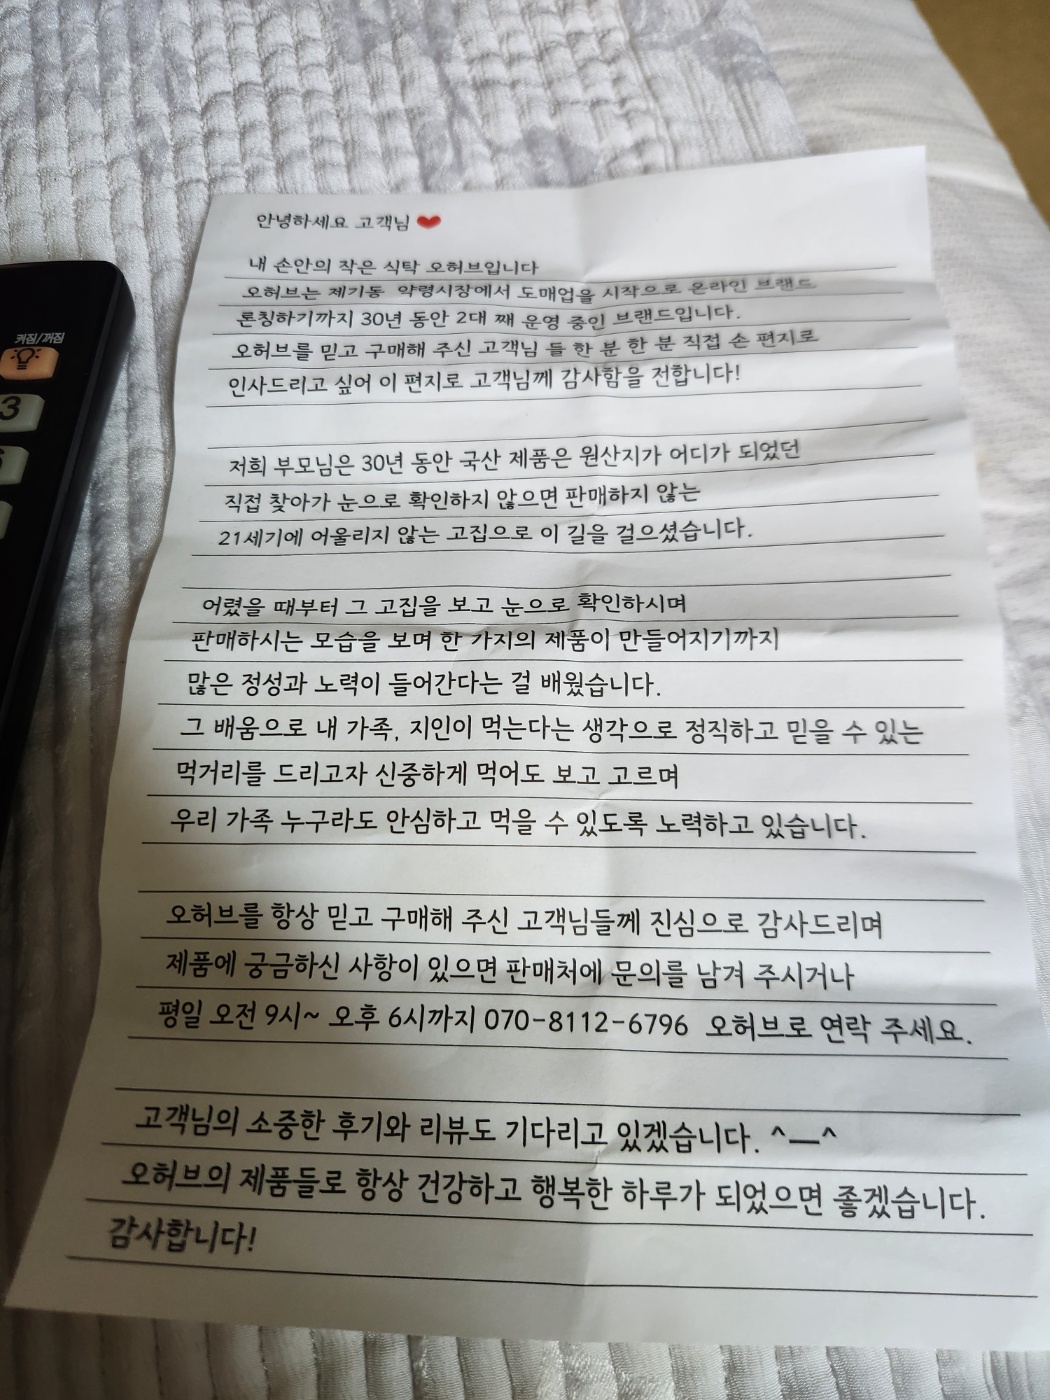 안녕하세요 고객님 ❤
내 손안의 작은 식탁 오허브입니다
오허브는 제기동 약령시장에서 도매업을 시작으로 온라인 브랜드
론칭하기까지 30년 동안 2대 째 운영 중인 브랜드입니다.
오허브를 믿고 구매해 주신 고객님 들 한 분 한 분 직접 손 편지로
인사드리고 싶어 이 편지로 고객님께 감사함을 전합니다!
저희 부모님은 30년 동안 국산 제품은 원산지가 어디가 되었던
직접 찾아가 눈으로 확인하지 않으면 판매하지 않는
21세기에 어울리지 않는 고집으로 이 길을 걸으셨습니다.
어렸을 때부터 그 고집을 보고 눈으로 확인하시며
판매하시는 모습을 보며 한 가지의 제품이 만들어지기까지
많은 정성과 노력이 들어간다는 걸 배웠습니다.
그 배움으로 내 가족, 지인이 먹는다는 생각으로 정직하고 믿을 수 있는
먹거리를 드리고자 신중하게 먹어도 보고 고르며
우리 가족 누구라도 안심하고 먹을 수 있도록 노력하고 있습니다.
오허브를 항상 믿고 구매해 주신 고객님들께 진심으로 감사드리며
제품에 궁금하신 사항이 있으면 판매처에 문의를 남겨 주시거나
평일 오전 9시~ 오후 6시까지 070-8112-6796 오허브로 연락 주세요.
고객님의 소중한 후기와 리뷰도 기다리고 있겠습니다. ^—^
오허브의 제품들로 항상 건강하고 행복한 하루가 되었으면 좋겠습니다.
감사합니다!
켜짐/꺼짐
3